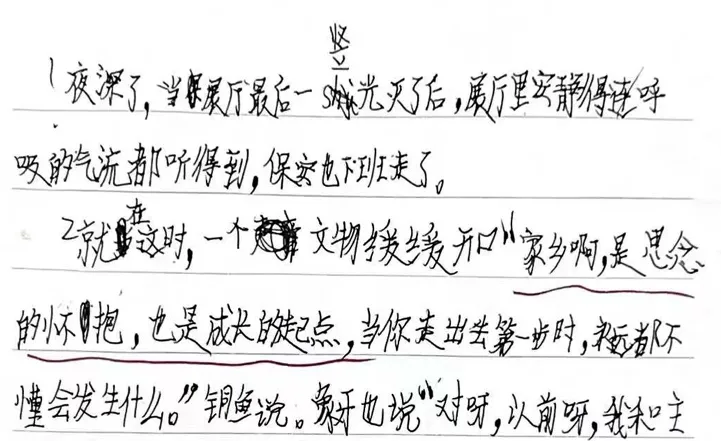 竖
1 夜深了,当展厅最后一光灭了后,展厅里安静得连呼
吸的气流都听得到,保安也下班走了。
2就在这时,一个文物缓缓开口"家乡啊,是思念
的怀抱,也是成长的起点,当你走出去第一步时,永远都不
懂会发生什么。"铜鱼说。象牙也说"对呀,以前呀,我和主